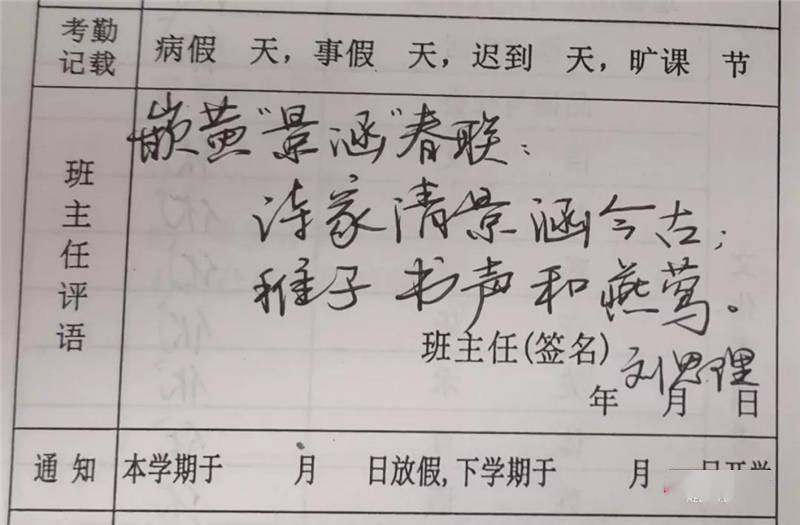 考勤记载
病假 天，事假 天，迟到 天，旷课 节
班主任评语
嵌黄"景涵"春联：
诗家清景涵今古；
稚子书声和燕莺。
班主任(签名)
刘思理
年 月 日
通知
本学期于 月 日放假,下学期于 月 日开学